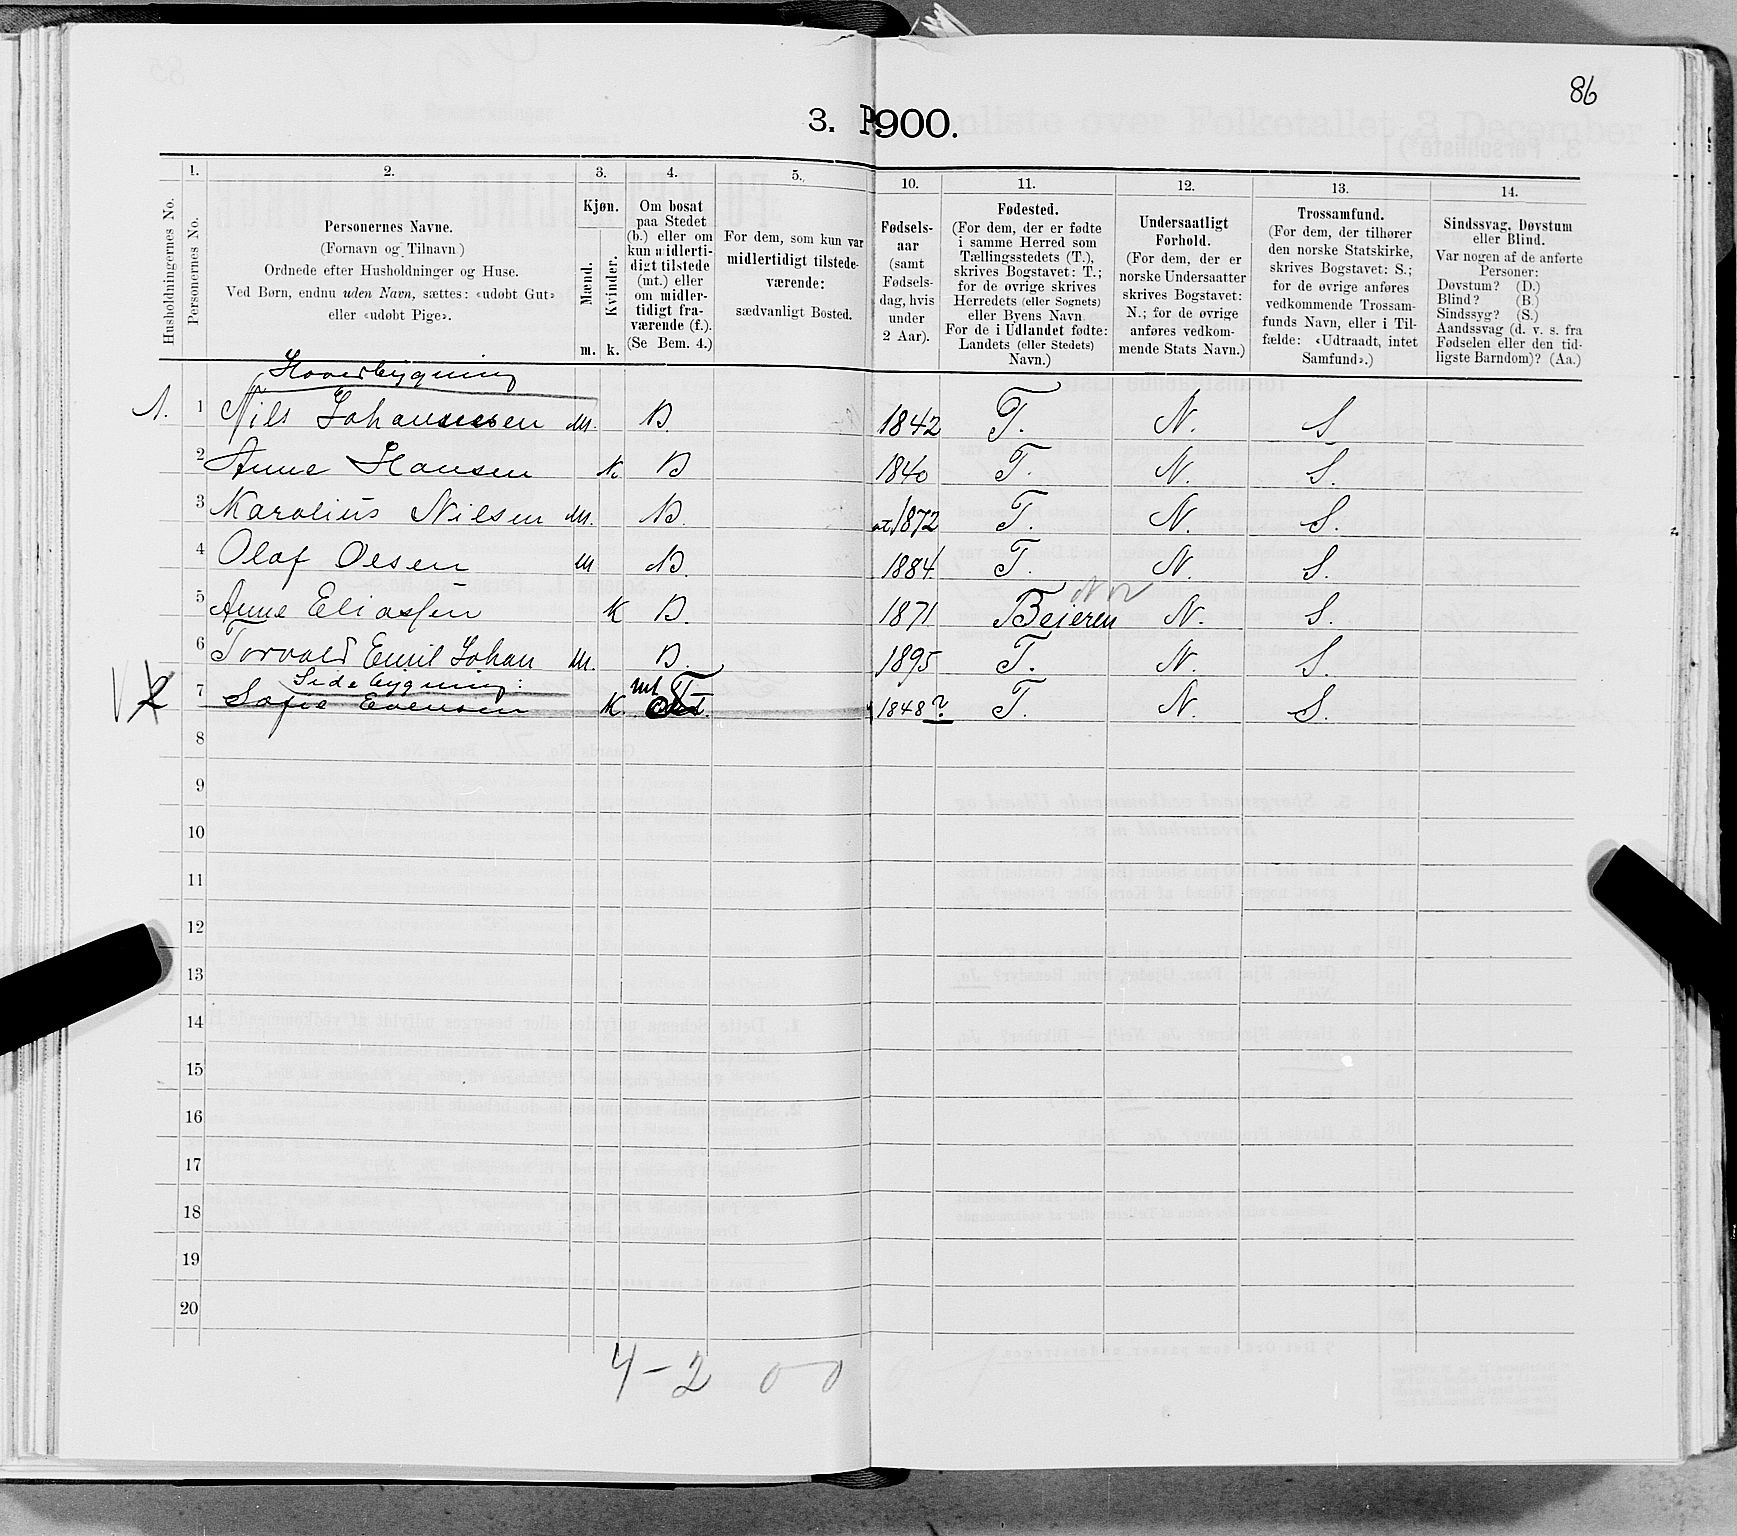 86
3. P900.
1. 2. 3. 4. 5. 10. 11. 12. 13. 14.
Husholdningernes No.
Personernes No.
Personernes Navne.
(Fornavn og Tilnavn)
Ordnede efter Husholdninger og Huse.
Ved Børn, endnu uden Navn, sættes: «udøbt Gut»
eller «udøbt Pige».
Kjøn.
Mænd.
Kvinder.
m. k.
Om bosat
paa Stedet
(b.) eller om
kun midlerti-
digt tilstede
(mt.) eller
om midler-
tidigt fra-
værende (f.).
(Se Bem. 4.)
For dem, som kun var
midlertidigt tilstede-
værende:
sædvanligt Bosted.
Fødsels-
aar
(samt
Fødsels-
dag, hvis
under
2 Aar).
Fødested.
(For dem, der er fødte
i samme Herred som
Tællingsstedets (T.),
skrives Bogstavet: T.;
for de øvrige skrives
Herredets (eller Sognets)
eller Byens Navn.
For de i Udlandet fødte:
Landets (eller Stedets)
Navn.)
Undersaatligt
Forhold.
(For dem, der er
norske Undersaatter
skrives Bogstavet:
N.; for de øvrige
anføres vedkom-
mende Stats Navn.)
Trossamfund.
(For dem, der tilhører
den norske Statskirke,
skrives Bogstavet: S.;
for de øvrige anføres
vedkommende Trossam-
funds Navn, eller i Til-
fælde: «Udtraadt, intet
Samfund».)
Sindssvag, Døvstum
eller Blind.
Var nogen af de anførte
Personer:
Døvstum? (D.)
Blind? (B.)
Sindssyg? (S.)
Aandssvag (d. v. s. fra
Fødselen eller den tid-
ligste Barndom)? (Aa.)
Hovedbygning
1. 1 Nils Johannessen m. B. 1842 T. N. S
2 Anne Hansen K B 1840 T. N. S.
3 Karolius Nilsen m. B. 1872 T. N. S.
4 Olaf Olsen m B. 1884. T. N. S.
5 Anne Eliassen K B. 1871 Beieren N. S.
6 Torvald Emil Johan m. B. 1895 T. N. S
Sidebygning:
2 7 Sofie Evensen K. mt T 1848? T. N. S.
8
9
10
11
12
13
14
15
16
17
18
19
20
4-2 0 0